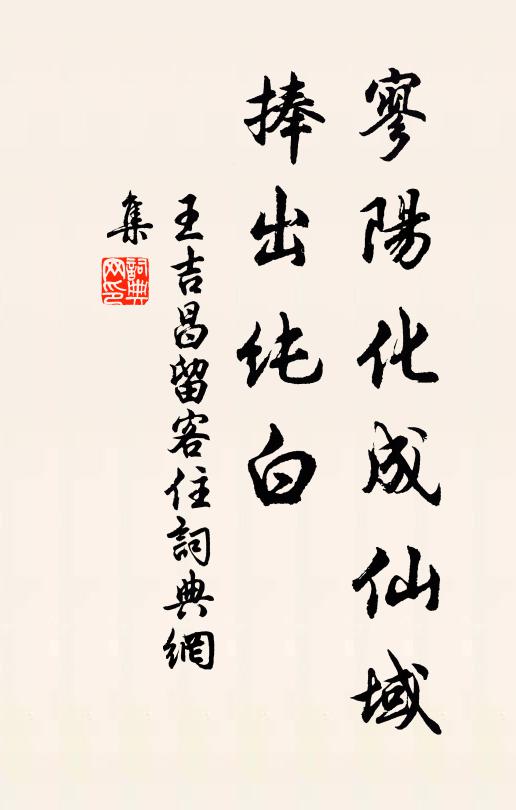 寥陽化成仙域
捧出纯白
王吉昌留客住詞典網
集
詞典
网印